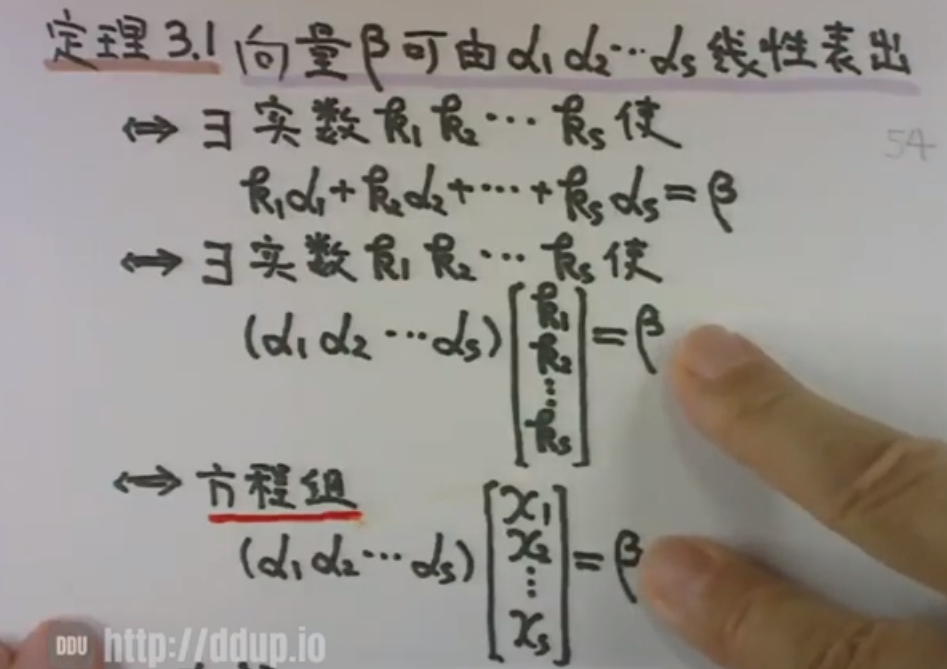 定理3.1 向量β可由α₁ α₂ ⋯ αₛ 线性表出
⟺ ∃ 实数 k₁ k₂ ⋯ kₛ 使
k₁α₁+k₂α₂+⋯+kₛαₛ=β
54
⟺ ∃ 实数 k₁ k₂ ⋯ kₛ 使
(α₁ α₂ ⋯ αₛ) [k₁ k₂ ⋮ kₛ] = β
⟺ 方程组
(α₁ α₂ ⋯ αₛ) [x₁ x₂ ⋮ xₛ] = β
DDU http://ddup.io